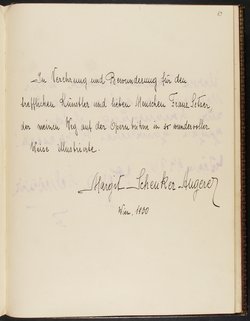 In Verehrung und Bewunderung für den
trefflichen Künstler und lieben Menschen Franz
der meinen Weg auf der Opernbühne in so wundervoller
Weise illustrierte.
Margit Schenker-Angerer
Wien, 1930